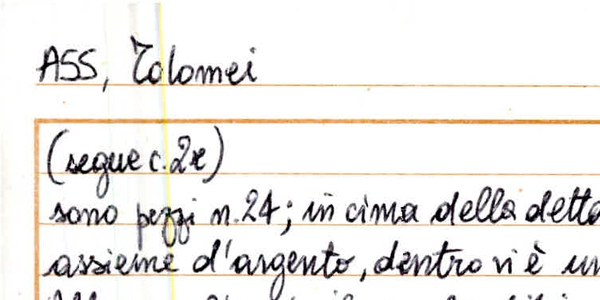 ASS, Tolomei
(segue c. 2r)
sono pezzi n. 24; in cima della detta
assieme d'argento, dentro vi è un